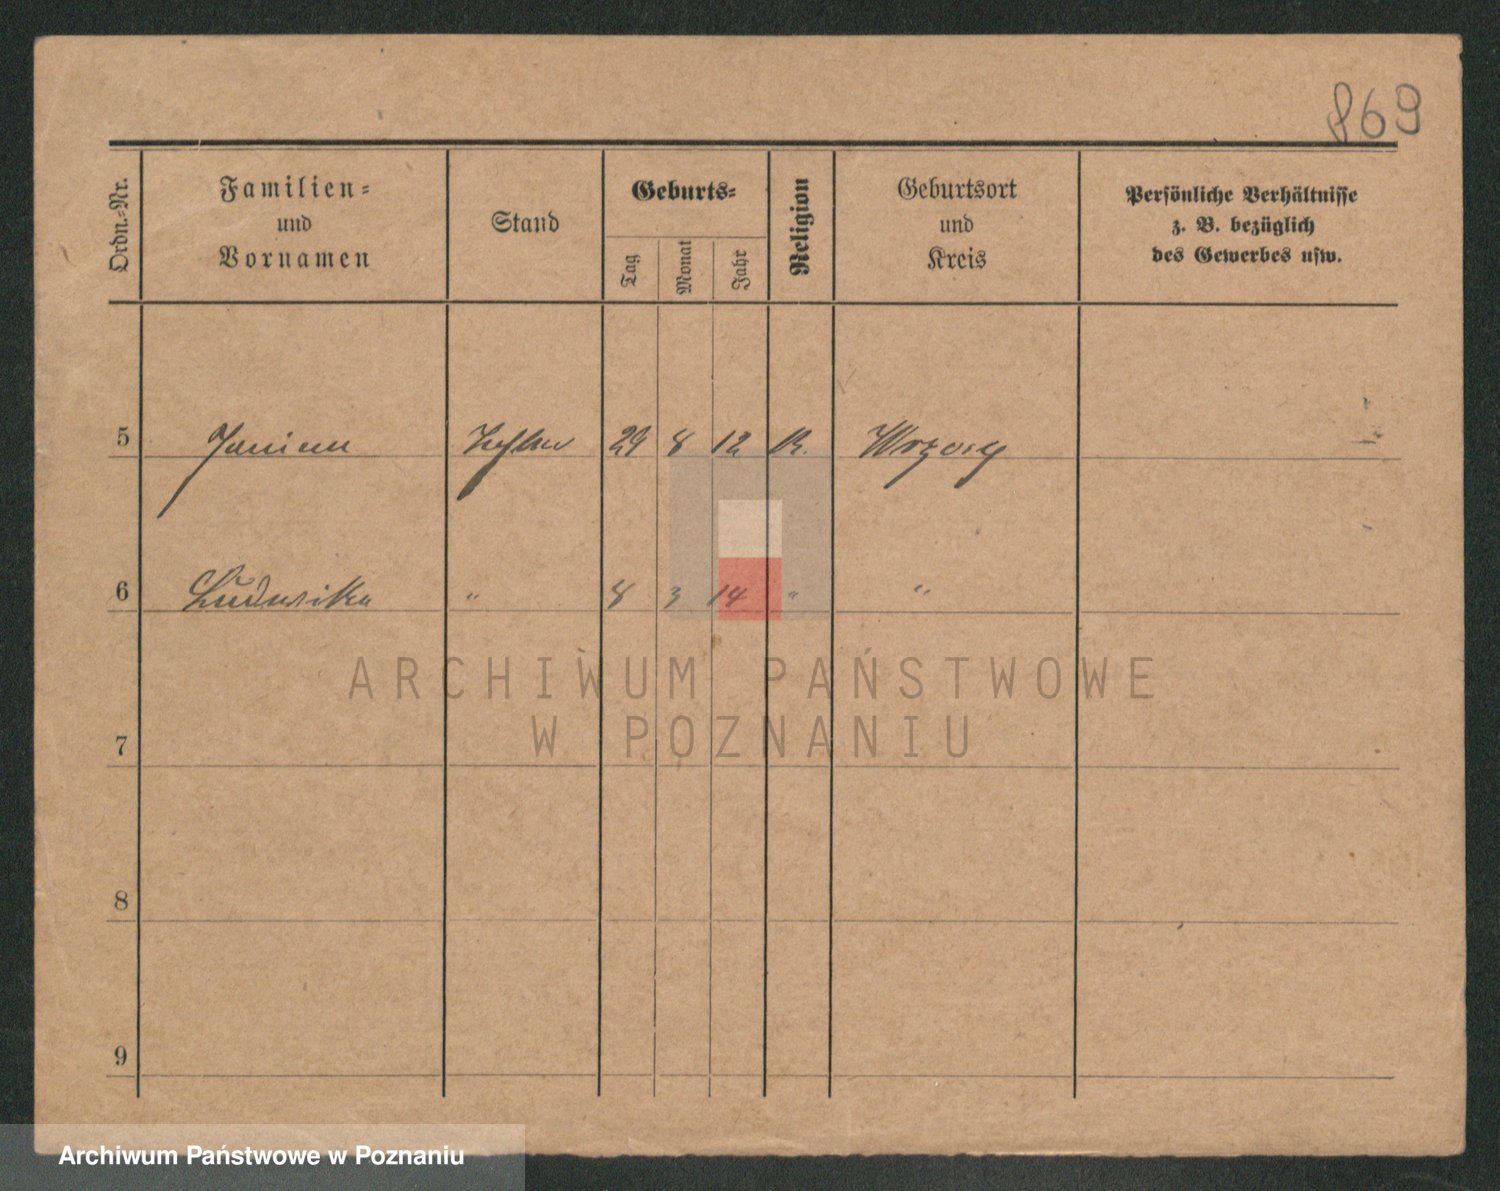 869
Ordn.-Nr.
Familien-
und
Vornamen
Stand
Geburts-
Tag
Monat
Jahr
Religion
Geburtsort
und
Kreis
Persönliche Verhältnisse
z. B. bezüglich
des Gewerbes usw.
5 29 8 12
6 Ludwika " 8 3 14 " "
ARCHIWUM PAŃSTWOWE
W POZNANIU
7
8
9
Archiwum Państwowe w Poznaniu